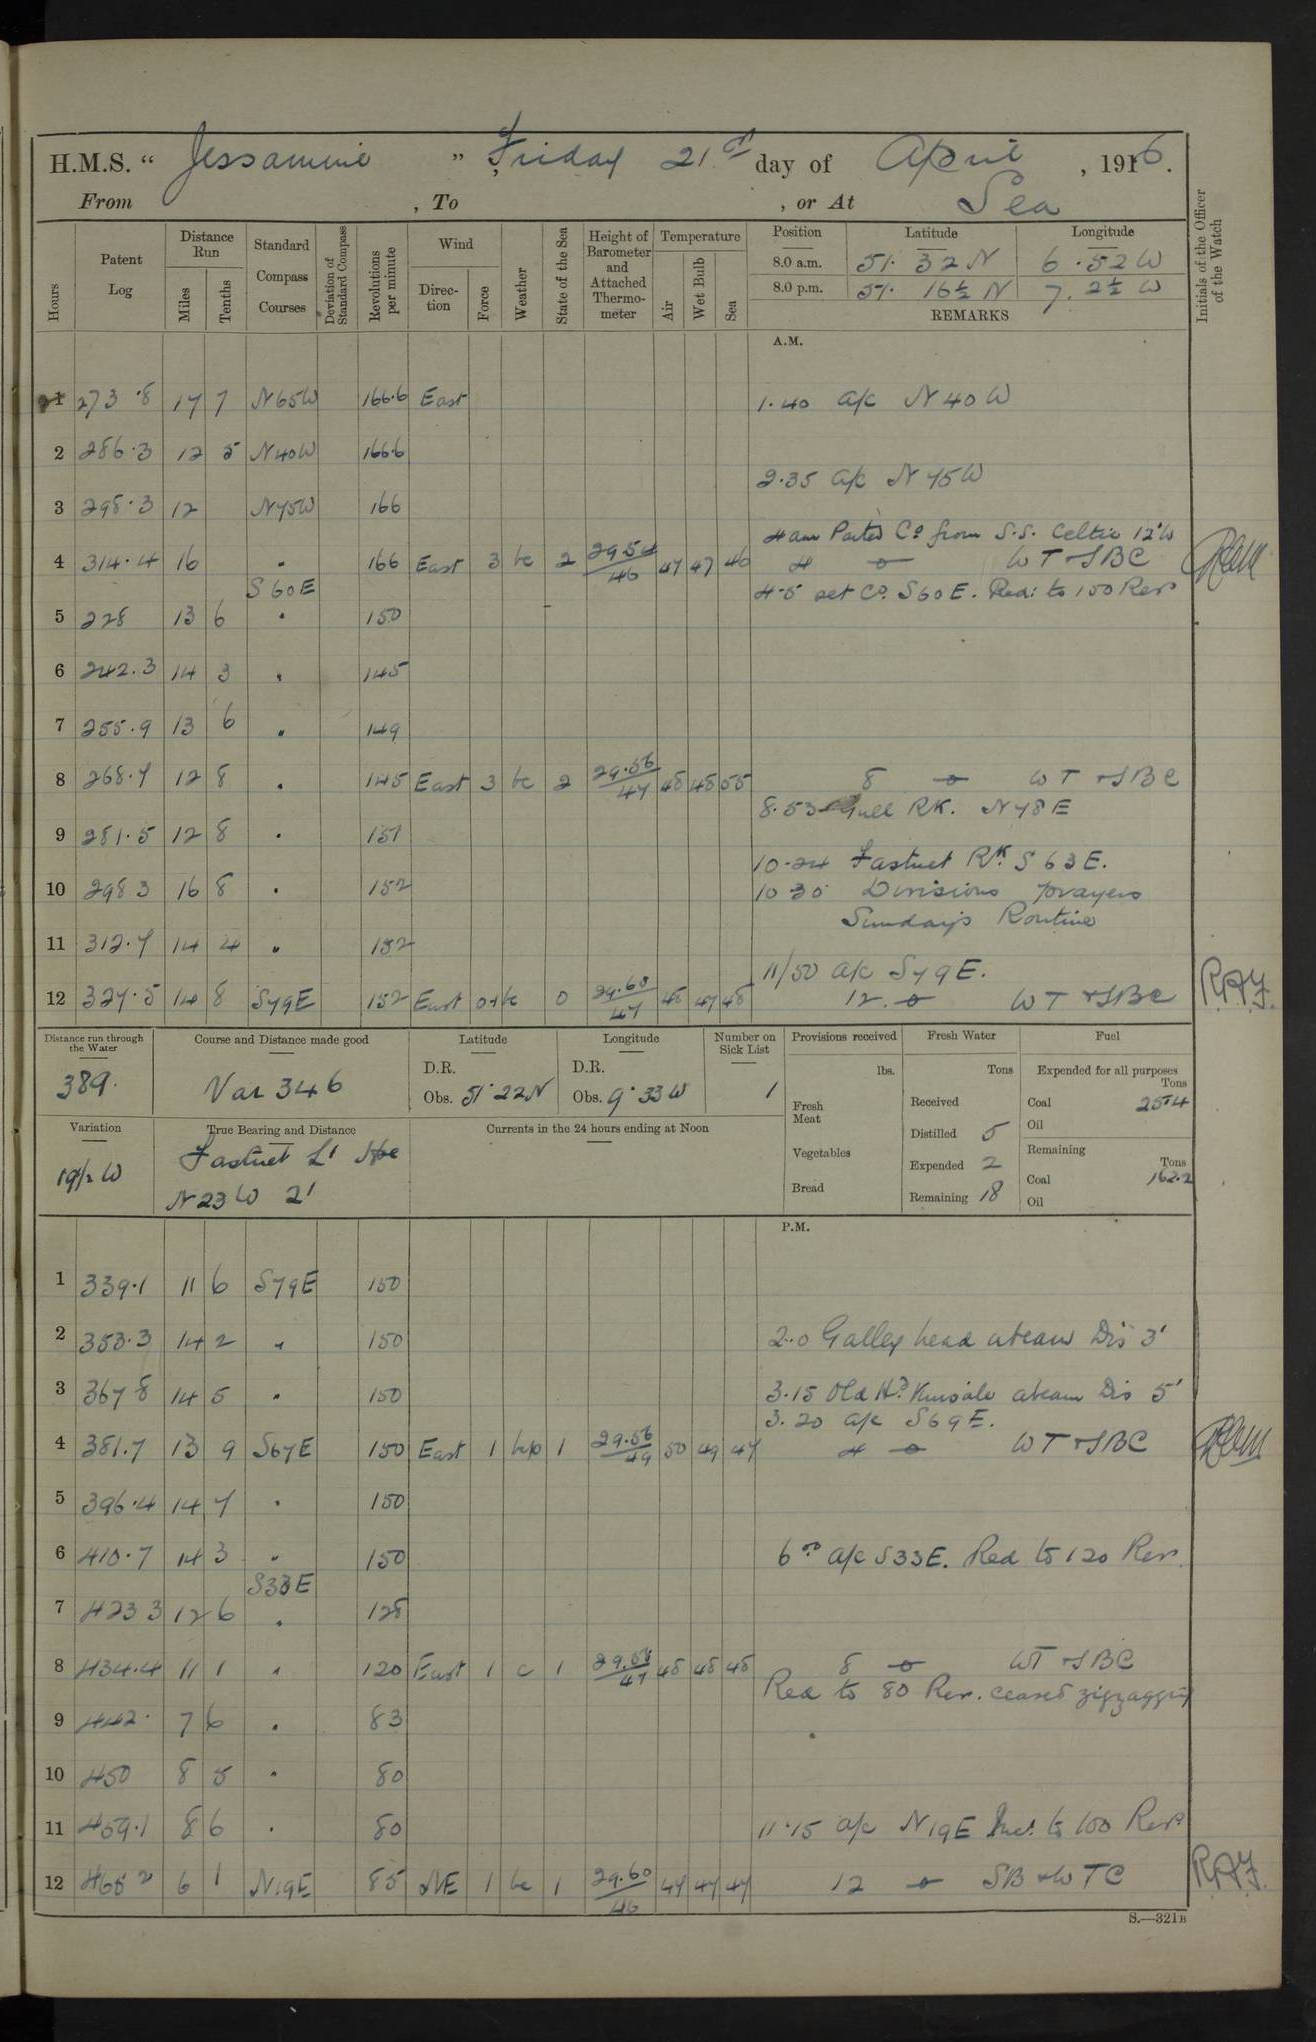 H.M.S. " Jessamine " , Friday 21st day of April , 1916.
From , To , or At Sea
Hours
Patent Log
Distance Run
Miles
Tenths
Standard Compass Courses
Deviation of Standard Compass
Revolutions per minute
Wind
Direction
Force
Weather
State of the Sea
Height of Barometer and Attached Thermometer
Temperature
Air
Wet Bulb
Sea
Position Latitude Longitude
8.0 a.m. 51. 32 N 6. 52 W
8.0 p.m. 51. 16½ N 7. 2½ W
REMARKS
Initials of the Officer of the Watch
A.M.
1 273.8 17 7 N65W 166.6 East 1.40 a/c N 40 W
2 286.3 12 5 N40W 166.6
2.35 a/c N 75 W
3 298.3 12 N75W 166
4 am Parted Co from S.S. Celtic 12'W
4 314.4 16 " 166 East 3 bc 2 29.54/46 47 47 46 4 WT & SBC
S60E 4.5 set Co. S60E. Red: to 150 Revs
5 228 13 6 " 150
6 242.3 14 3 " 145
7 255.9 13 6 " 149
8 268.7 12 8 " 145 East 3 bc 2 29.56/47 48 48 55 8 WT & SBC
8.53 Gull RK. N78E
9 281.5 12 8 " 151
10-24 Fastnet Rk. S 63 E.
10 298 3 16 8 " 152 10-30 Divisions prayers
Sundays Routine
11 312.7 14 4 " 152
11/50 a/c S79E.
12 327.5 14 8 S79E 152 East 0+1 bc 0 29.60/47 48 47 48 12. WT & SBC R.A.F.
Distance run through the Water
389.
Course and Distance made good
Var 346
Latitude
D.R.
Obs. 51°22N
Longitude
D.R.
Obs. 9°33W
Number on Sick List
1
Provisions received
lbs.
Fresh Meat
Vegetables
Bread
Fresh Water
Tons
Received
Distilled 5
Expended 2
Remaining 18
Fuel
Expended for all purposes
Tons
Coal 25.4
Oil
Remaining
Tons
Coal 162.2
Oil
Variation
19½ W
True Bearing and Distance
Fastnet Lt Hse
N23W 2'
Currents in the 24 hours ending at Noon
P.M.
1 339.1 11 6 S79E 150
2 353.3 14 2 " 150 2.0 Galley head abeam Dis 3'
3 367 8 14 5 " 150 3.15 Old Hd Kinsale abeam Dis 5'
3. 20 a/c S69E.
4 381.7 13 9 S67E 150 East 1 bcp 1 29.56/49 50 49 47 4 WT & SBC
5 396.4 14 7 " 150
6 410.7 14 3 " 150 6.0 a/c S33E. Red to 120 Rev.
S33E
7 423 3 12 6 " 128
8 434.4 11 1 " 120 East 1 c 1 29.58/47 48 48 48 8 WT & SBC
Red to 80 Rev. ceased zigzagging
9 442. 7 6 " 83
10 450 8 5 " 80
11 459.1 8 6 " 80 11.15 a/c N19E Inc. to 100 Revs
12 465 2 6 1 N19E 85 NE 1 bc 1 29.60/46 47 47 47 12 SB & WTC R.A.F.
S.—321B